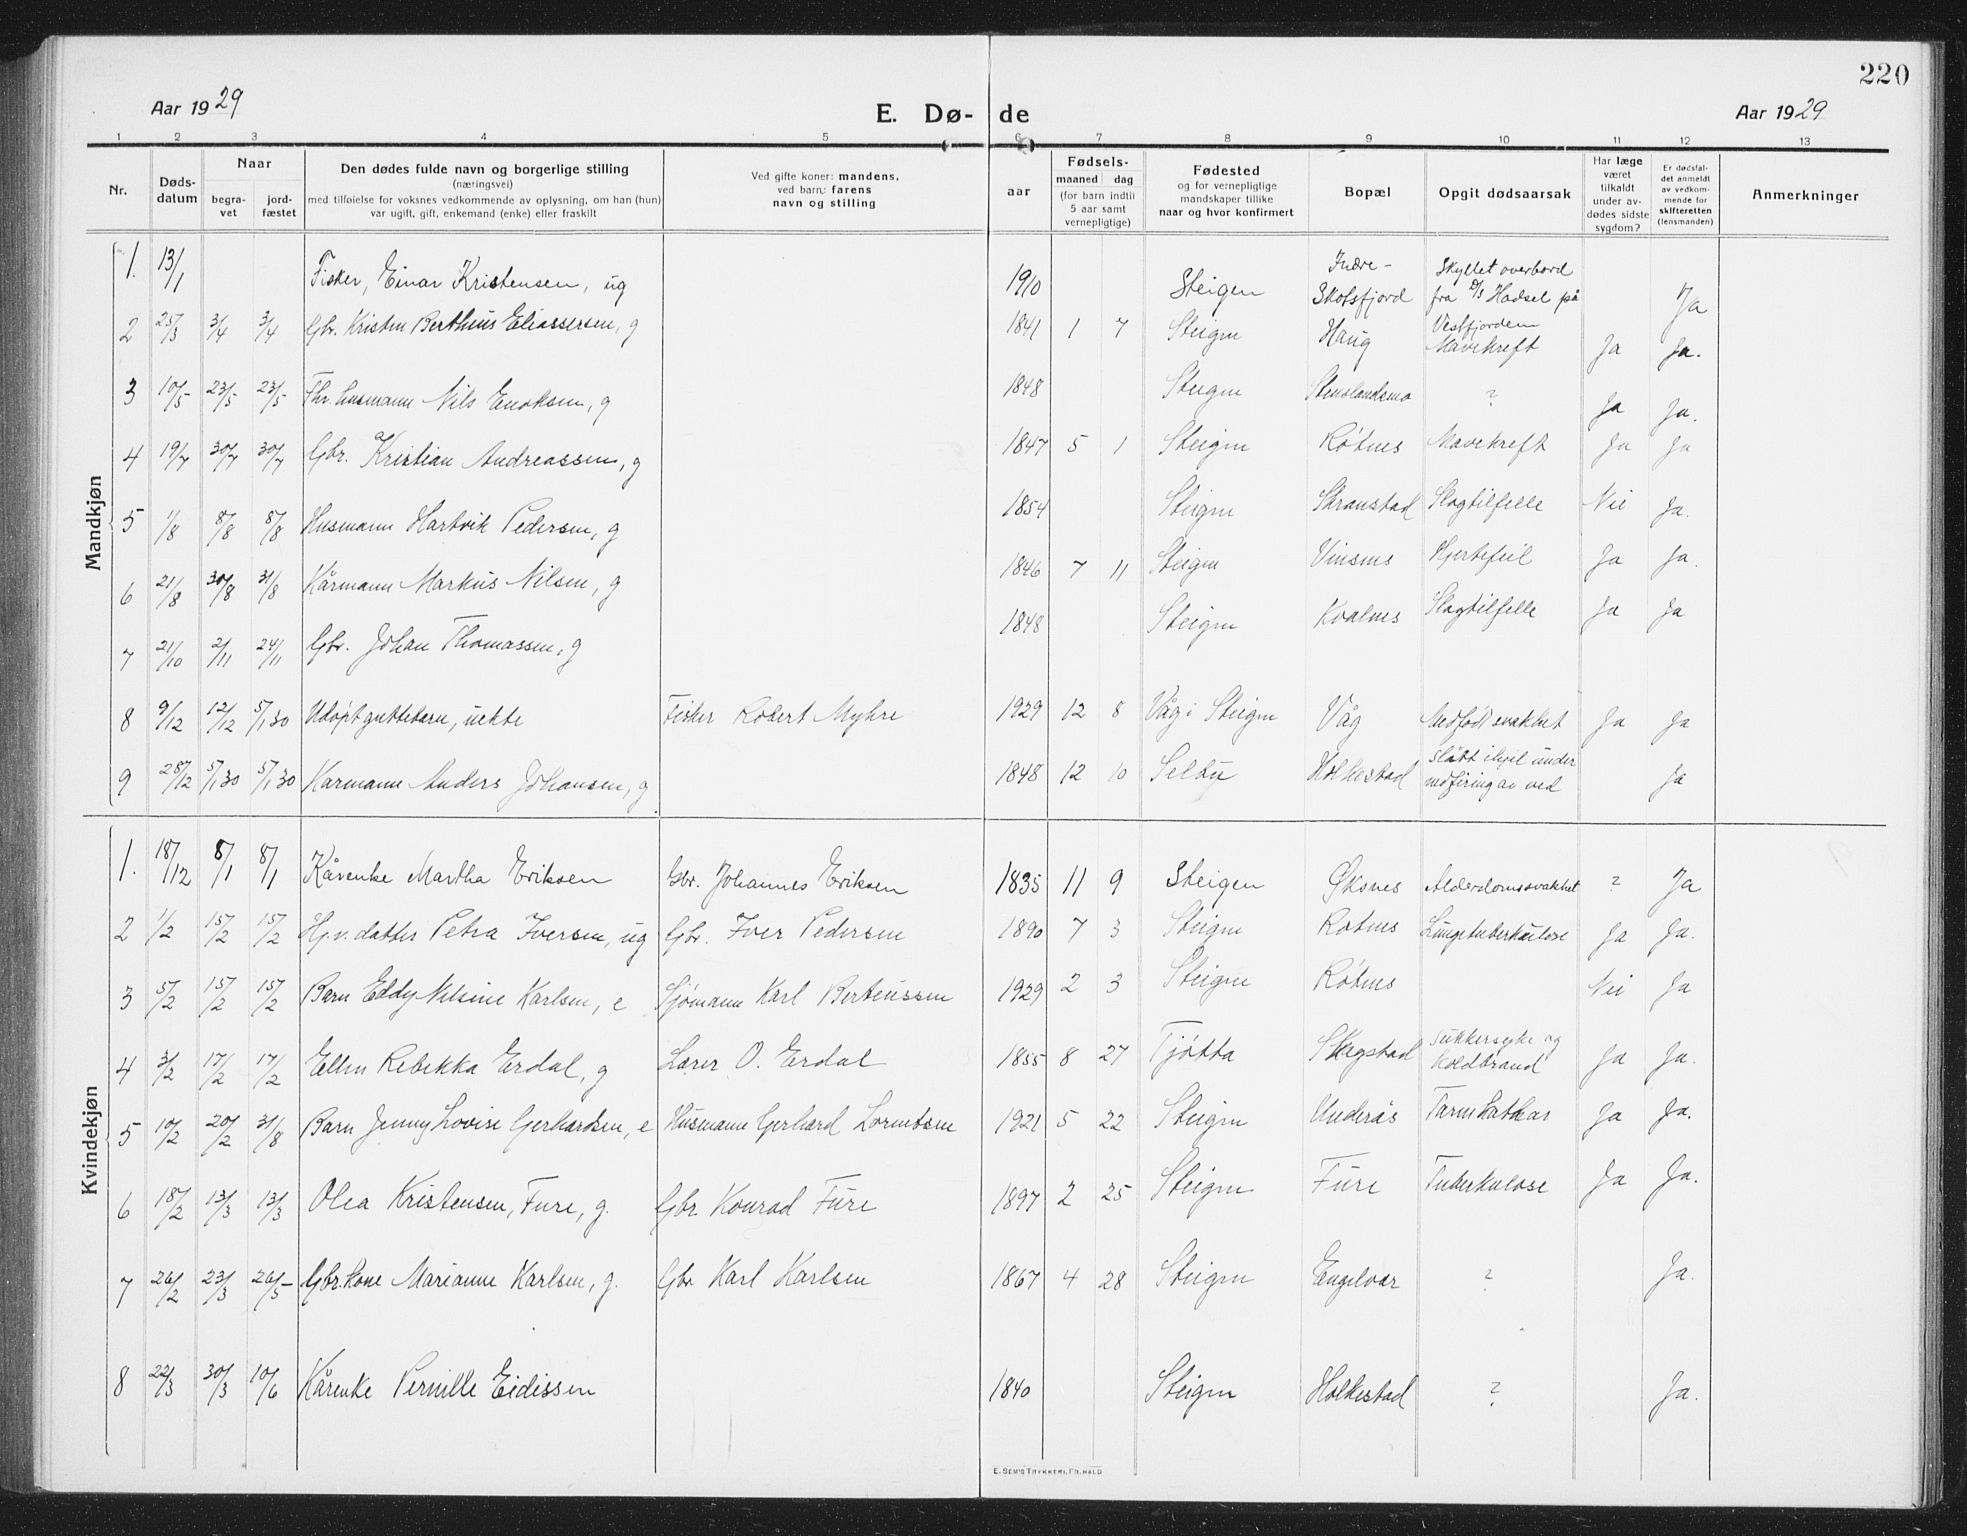 220
Aar 1929 E. Dø- de Aar 1929
1 2 3 4 5 6 7 8 9 10 11 12 13
Nr. Døds-datum Naar begra-vet jord-fæstet Den dødes fulde navn og borgerlige stilling (næringsvei) med tilføielse for voksnes vedkommende av oplysning, om han (hun) var ugift, gift, enkemand (enke) eller fraskilt Ved gifte koner: mandens, ved barn: farens navn og stilling Fødsels- aar maaned dag (for barn indtil 5 aar samt vernepligtige) Fødested og for vernepligtige mandskaper tillike naar og hvor konfirmert Bopæl Opgit dødsaarsak Har læge været tilkaldt under av-dødes sidste sygdom? Er dødsfal-det anmeldt av vedkom-mende for skifteretten (lensmanden) Anmerkninger
Mandkjøn
1. 13/1 Fisker, Einar Kristensen, ug 1910 Steigen Indre- Skotsfjord Skyllet overbord fra D/S Hadsel på Vestfjorden Ja
2 25/3 3/4 3/4 Gbr. Kristen Bertheus Eliassersen, g 1841 1 7 Steigen Haug Mavekreft Ja Ja.
3 10/5 23/5 23/5 Fhv. husmann Nils Enoksen, g 1848 Steigen Stenslandsmo ? Ja Ja.
4 19/7 30/7 30/7 Gbr. Kristian Andreassen, g 1847 5 1 Steigen Røtnes Mavekreft Ja Ja
5 1/8 8/8 8/8 Husmann Hartvik Pedersen, g 1854 Steigen Skranstad Slagtilfelle Nei Ja.
6 21/8 30/8 31/8 Kårmann Markus Nilsen, g 1846 7 11 Steigen Vinsnes Hjertefeil Ja Ja.
7 21/10 2/11 24/11 Gbr. Johan Thomassen, g 1848 Steigen Kvalnes Slagtilfelle Ja Ja
8 9/12 12/12 5/1 30 Udøpt guttebarn, uekte Fisker Robert Myhre 1929 12 8 Våg i Steigen Våg Medfødt svakhet Ja Ja
9 28/12 5/1 30 5/1 30 Karmann Anders Johansen, g. 1848 12 10 Selbu Holkestad Slått ihjel under nedfiring av ved Ja
Kvindekjøn
1. 18/12 8/1 8/1 Kårenke Martha Eriksen Gbr. Johannes Eriksen 1835 11 9 Steigen Øksnes Alderdomssvakhet ? Ja
2 1/2 15/2 15/2 Hj.v. datter Petra Iversen, ug Gbr. Iver Pedersen 1890 7 3 Steigen Rotnes Lungetuberkulose Ja Ja.
3 5/2 15/2 15/2 Barn Eddy Nilsine Karlsen, e Sjømann Karl Berteussen 1929 2 3 Steigen Røtnes Nei Ja
4 3/2 17/2 17/2 Ellen Rebekka Erdal, g Lærer O. Erdal 1855 8 27 Tjøtta Skagstad Sukkersyke og Koldbrand Ja Ja.
5 10/2 20/2 31/8 Barn Jenny Lovise Gerhardsen, e Husmann Gerhard Lorentsen 1921 5 22 Steigen Underås Tarmkathar Ja Ja.
6 18/2 13/3 13/3 Olea Kristensen, Fure, g. Gbr. Konrad Fure 1897 2 25 Steigen Fure Tuberkulose Ja Ja.
7 26/2 23/3 26/5 Gbr. kone Marianne Karlsen, g. Gbr Karl Karlsen 1867 4 28 Steigen Engelvær ? Ja.
8 22/3 30/3 10/6 Kårenke Pernille Eidissen 1840 Steigen Holkestad ? Ja.
E. SEM'S TRYKKERI, FR.HALD